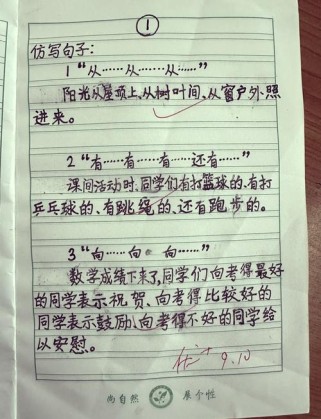 ①
仿写句子:
1“从……从……从……”
阳光从屋顶上、从树叶间、从窗户外照
进来。
2“有……有……有……还有……”
课间活动时、同学们有打篮球的、有打
乒乓球的、有跳绳的、还有跑步的。
3“向……向……向……”
数学成绩下来了,同学们向考得最好
的同学表示祝贺、向考得比较好的
同学表示鼓励、向考得不好的同学给
以安慰。
优+ 9.10
尚自然 展个性